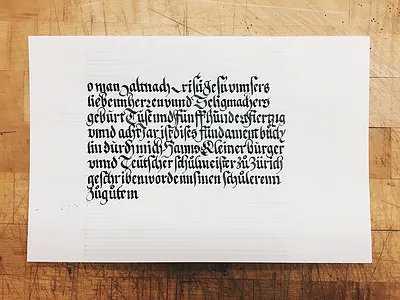 o man zalt nach Cristi Jesu unsers
lieben herren und Seligmachers
geburt Tusend funff hundert viertzig
unnd acht jar ist dises fundament büch
lin durch mich Hanns Kleiner burger
unnd Teutscher schülmeister zů Zürich
geschriben worden sinen schülerenn
Zů gůtem